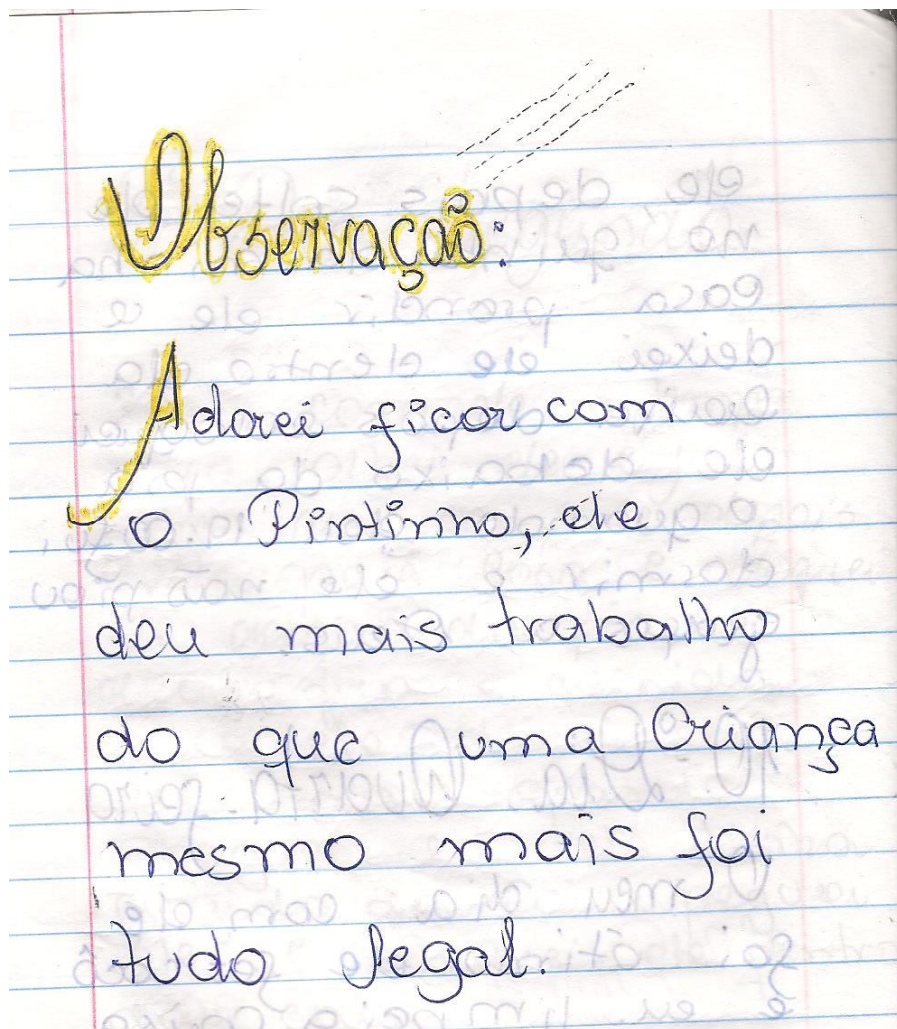 Observação:
Adorei ficar com
o Pintinho, ele
deu mais trabalho
do que uma Criança
mesmo mais foi
tudo legal.